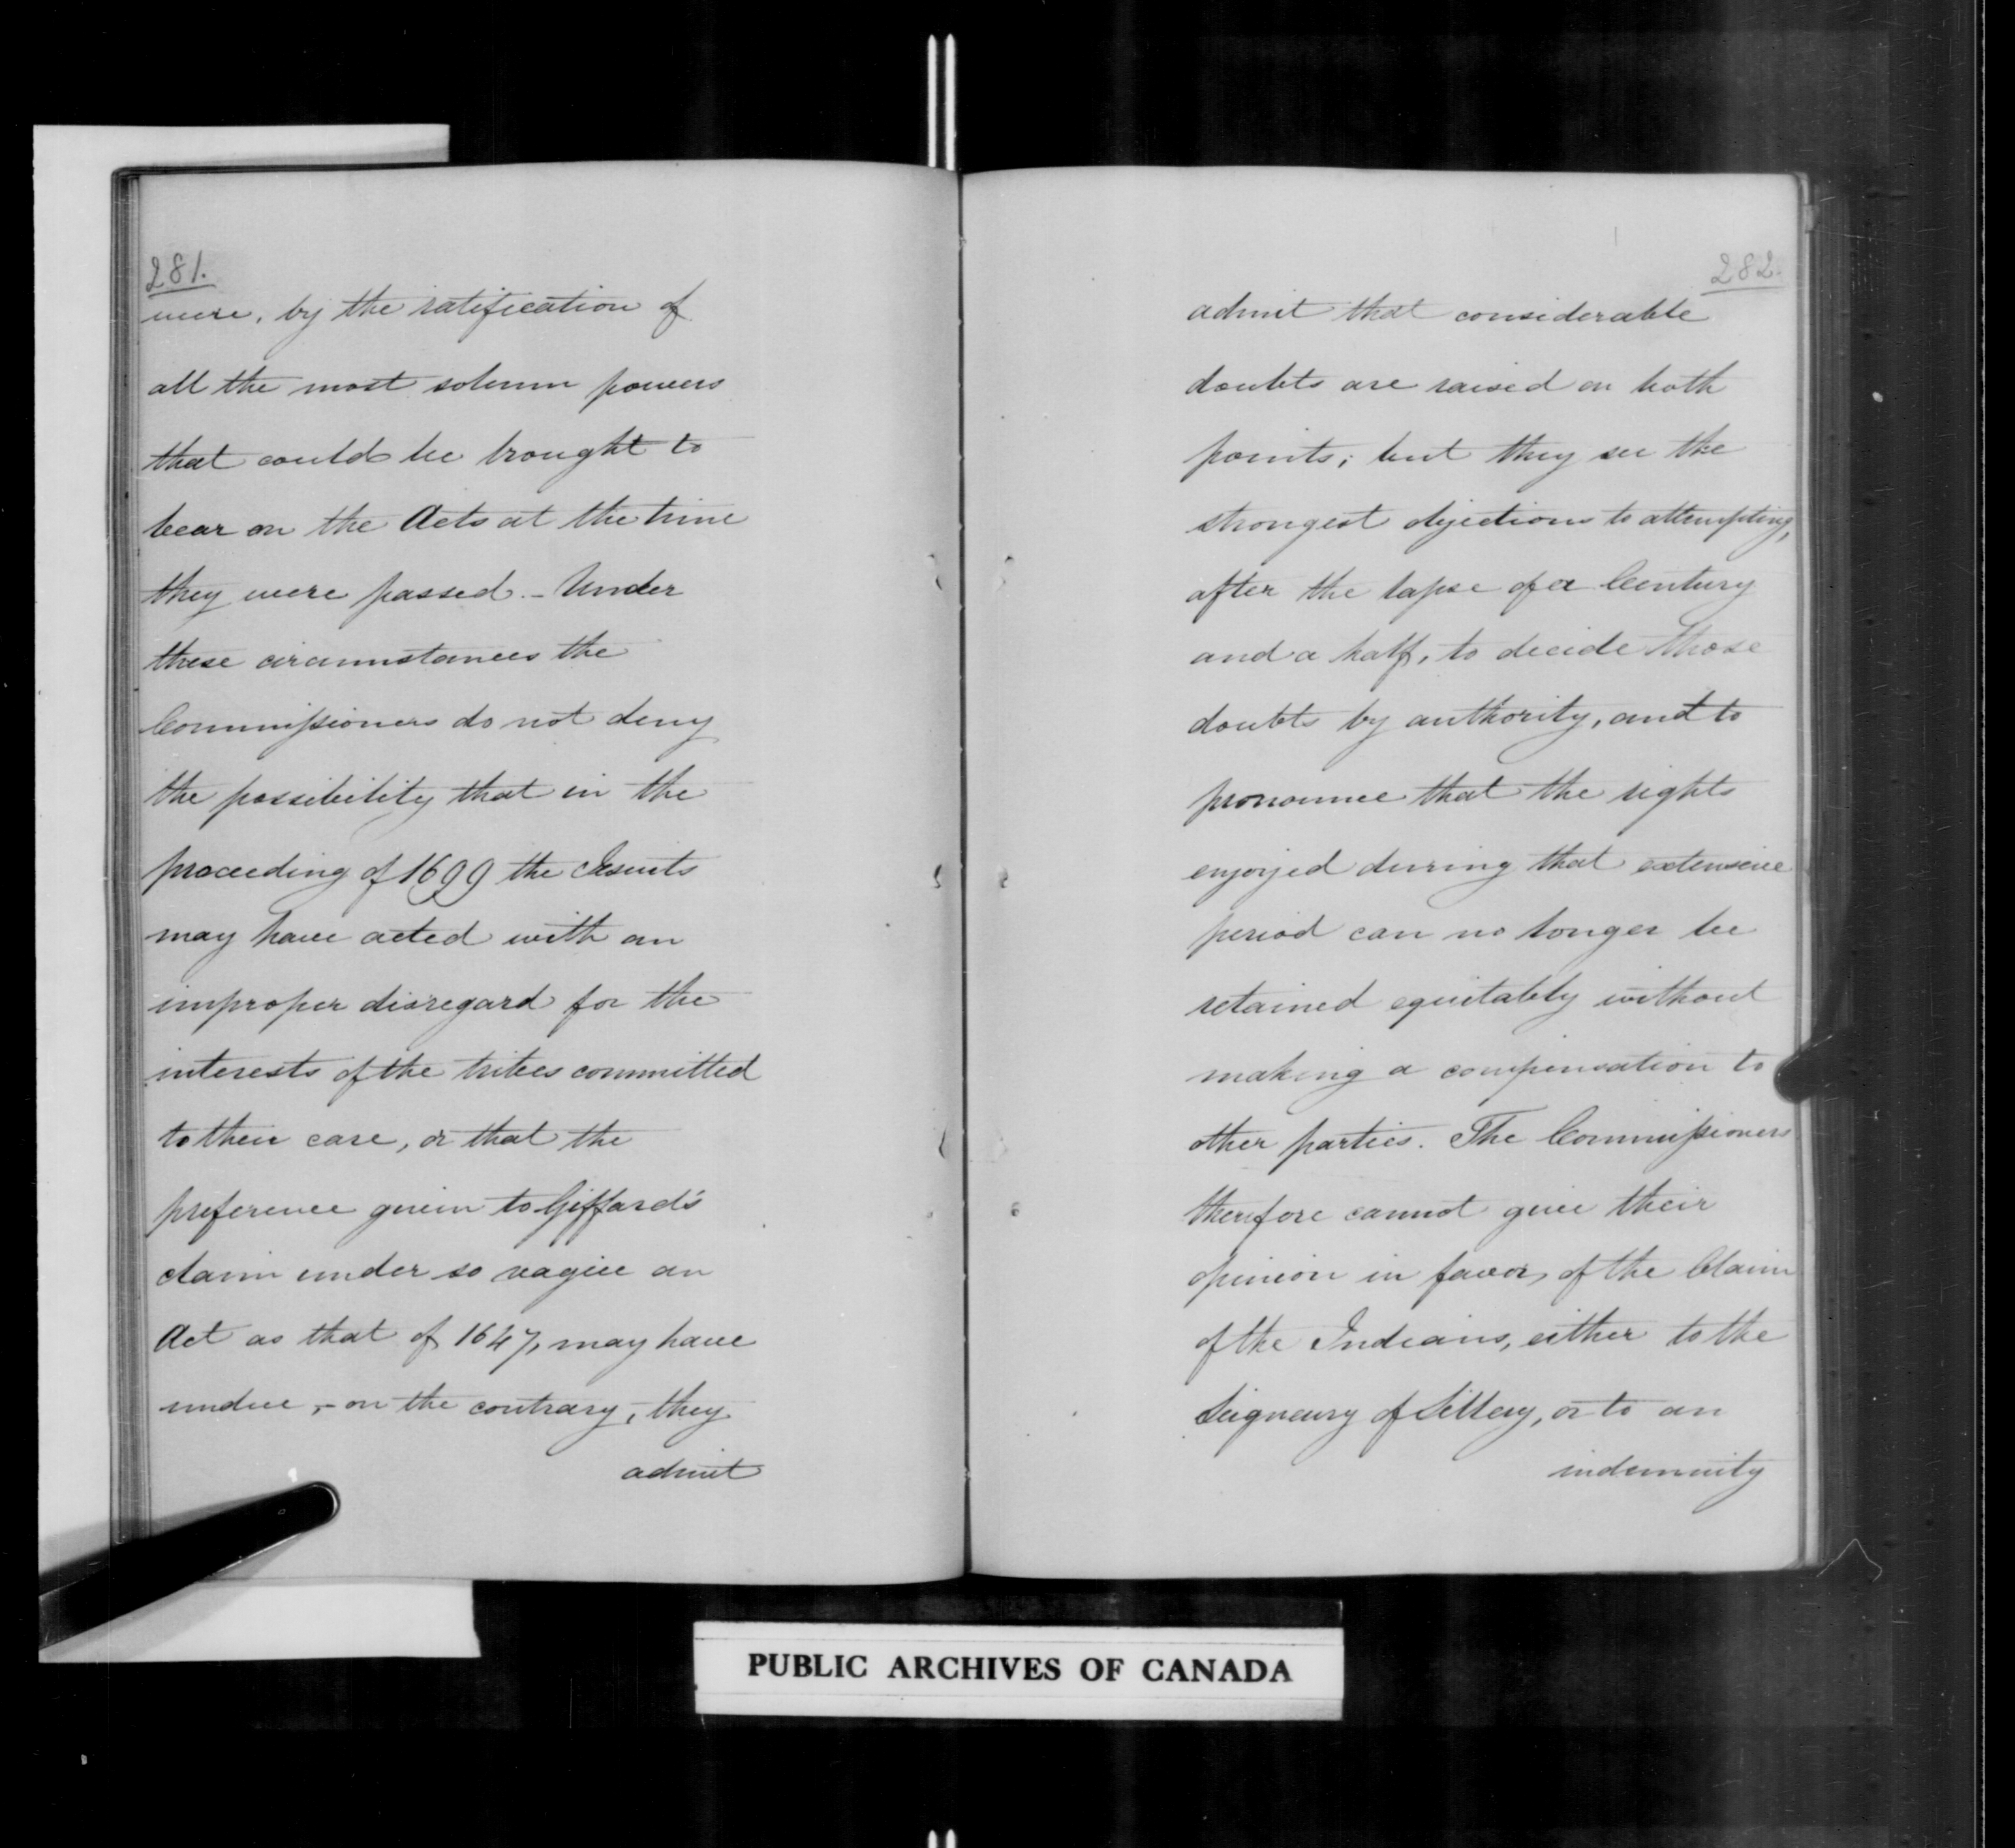 281.
were, by the ratification of
all the most solemn powers
that could be brought to
bear on the Acts at the time
they were passed. - Under
these circumstances the
Commissioners do not deny
the possibility that in the
proceeding of 1699 the Jesuits
may have acted with an
improper disregard for the
interests of the tribes committed
to their care, or that the
preference given to Giffard's
claim under so vague an
Act as that of 1647, may have
undue, - on the contrary, they
admit
282.
admit that considerable
doubts are raised on both
points; but they see the
strongest objections to attempting,
after the lapse of a Century
and a half, to decide those
doubts by authority, and to
pronounce that the rights
enjoyed during that extensive
period can no longer be
retained equitably without
making a compensation to
other parties. The Commissioners
therefore cannot give their
opinion in favor of the Claim
of the Indians, either to the
Seigneury of Sillery, or to an
indemnity
PUBLIC ARCHIVES OF CANADA